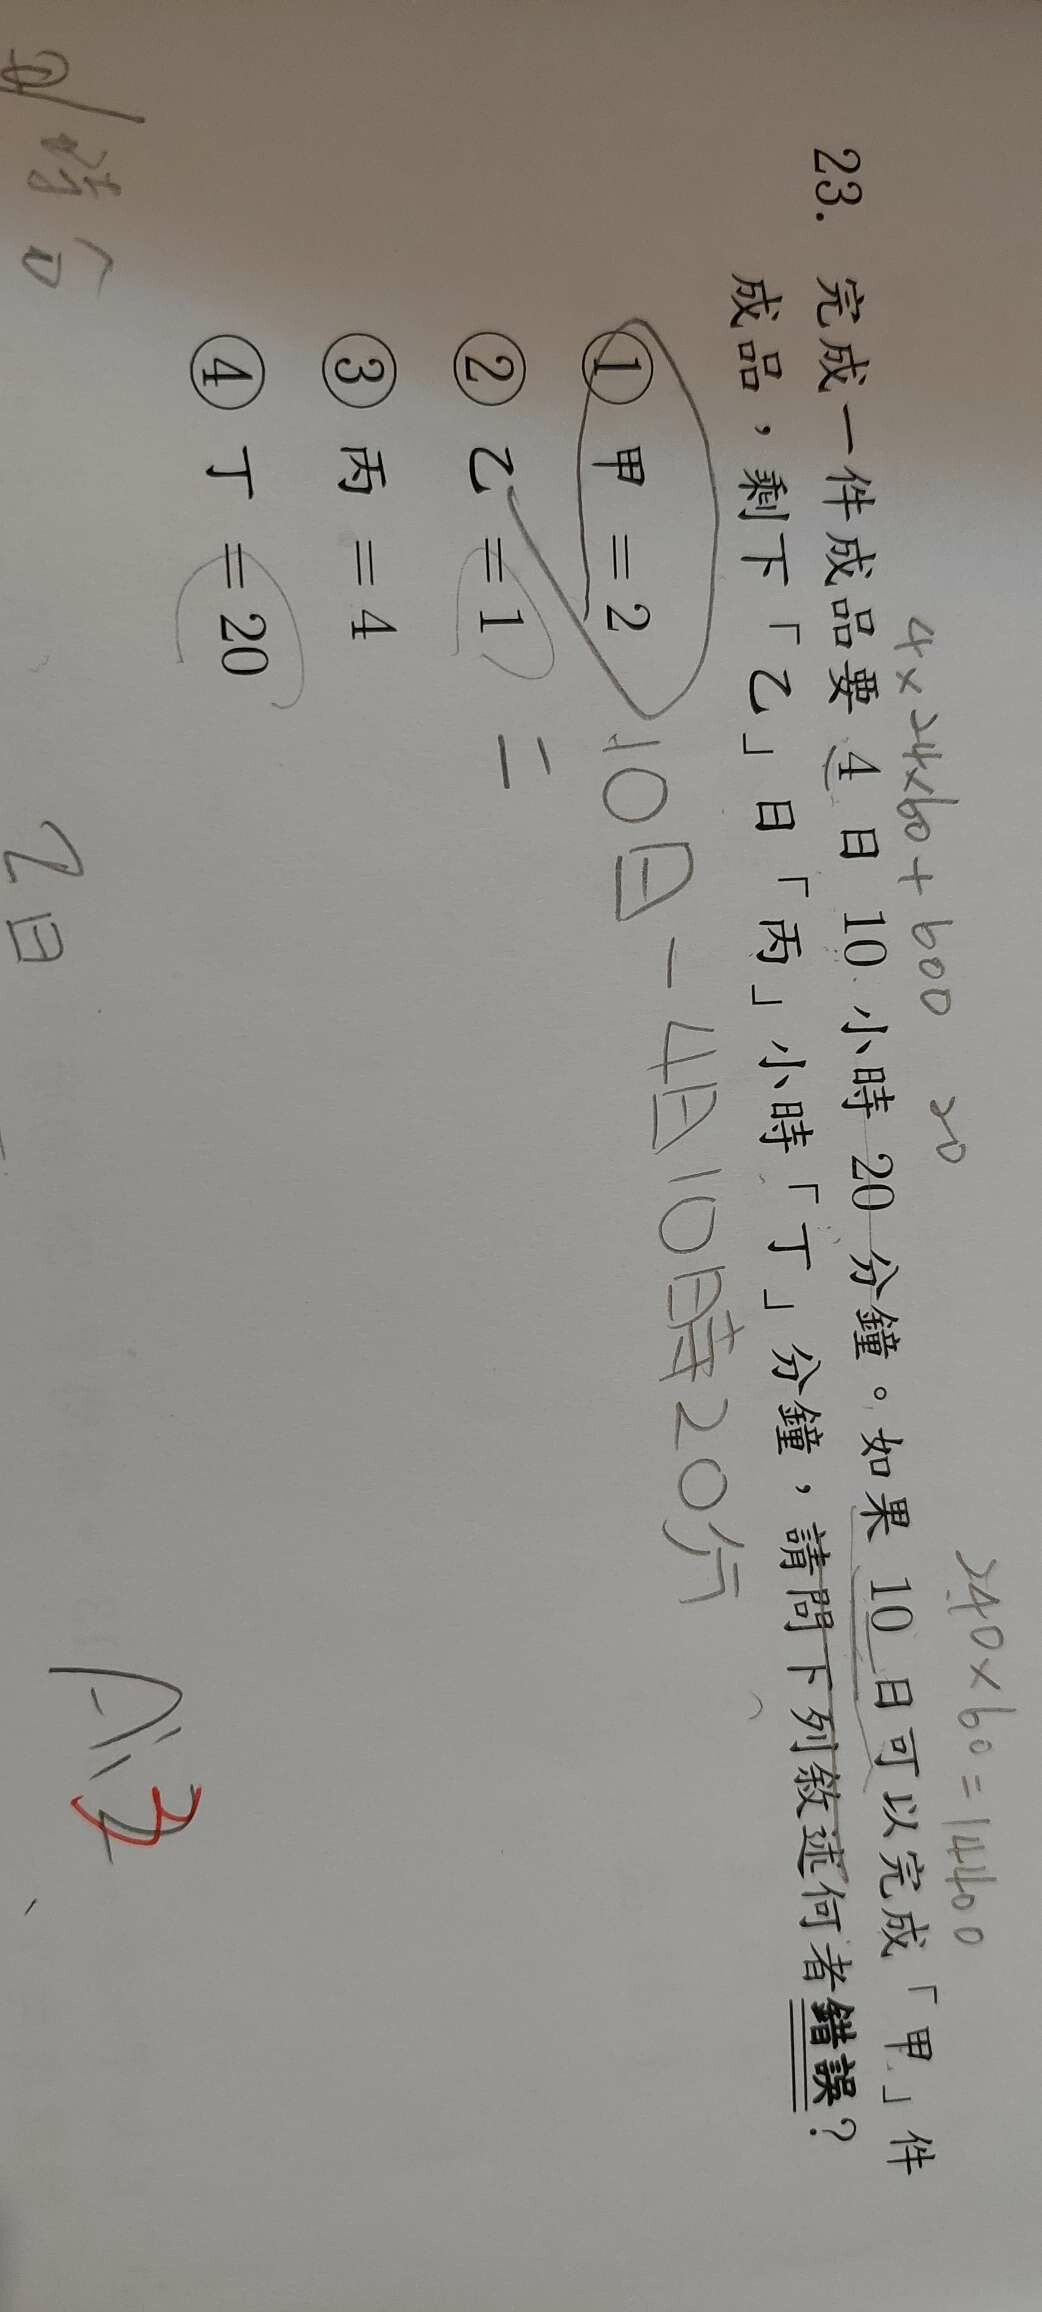 4×24×60+600 20
240×60=14400
23. 完成一件成品要 4 日 10 小時 20 分鐘。如果 10 日可以完成「甲」件
成品，剩下「乙」日「丙」小時「丁」分鐘，請問下列敘述何者錯誤？
① 甲 = 2
10日-4日10時20分
② 乙 = 1
=
③ 丙 = 4
④ 丁 = 20
2日
A:3